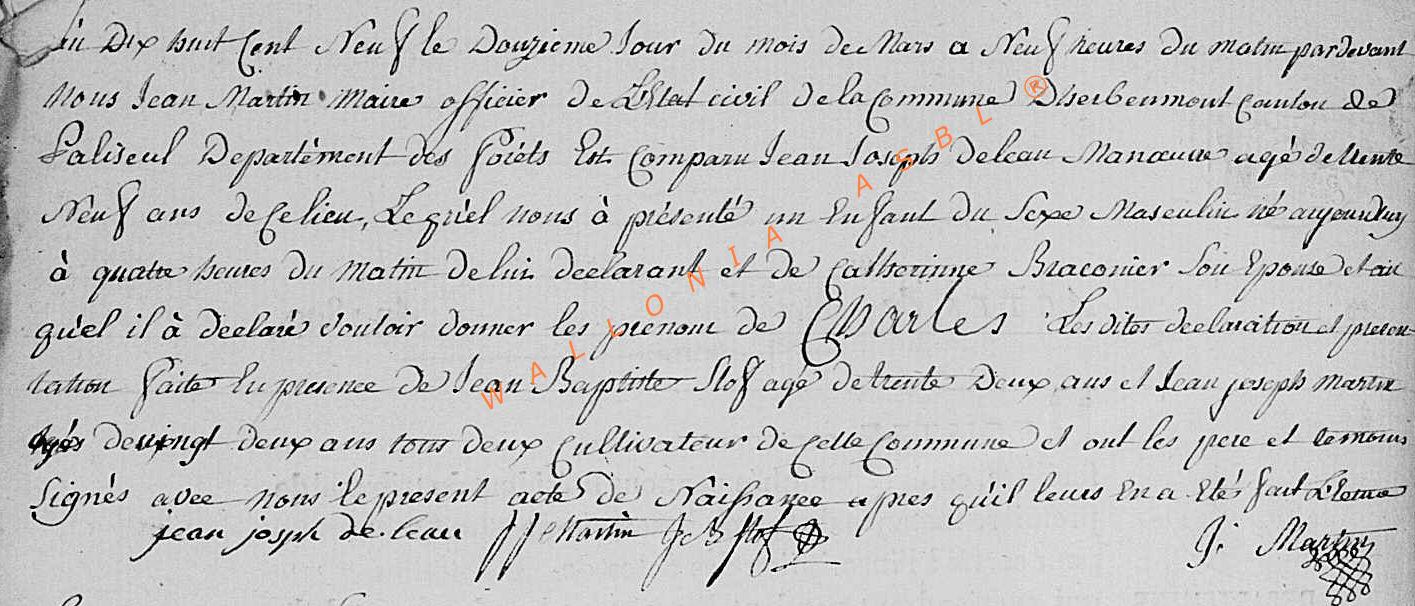 Dix huit Cent Neuf le Douzieme Jour du mois de Mars a Neuf heures du matin pardevant
Nous Jean Martin Maire officier de L'Etat civil de la Commune D'herbeumont Canton de
Paliseul Departément des foréts Est Comparu Jean Joseph deleau Manœuvre agé de trente
Neuf ans de Ce lieu, Lequ'el nous à présenté un Enfant du Sexe Masculin né aujourdhuy
à quatre heures du Matin de lui declarant et de Catherinne Braconier Son Epouse et au
qu'el il à declaré vouloir donner les prénom de Charles Les dites declaration et presen-
tation faite En presence de Jean Baptiste Slof agé de trente Deux ans et Jean joseph Martin
agés de vingt deux ans tous deux Cultivateur de Cette Commune et ont les pere et temoins
Signés avec nous le present acte de Naissance apres qu'il leurs En a Etés fait Lecture
jean josph de leau JJ Martin J B Slof J. Martin
WALLONIA ASBL ®